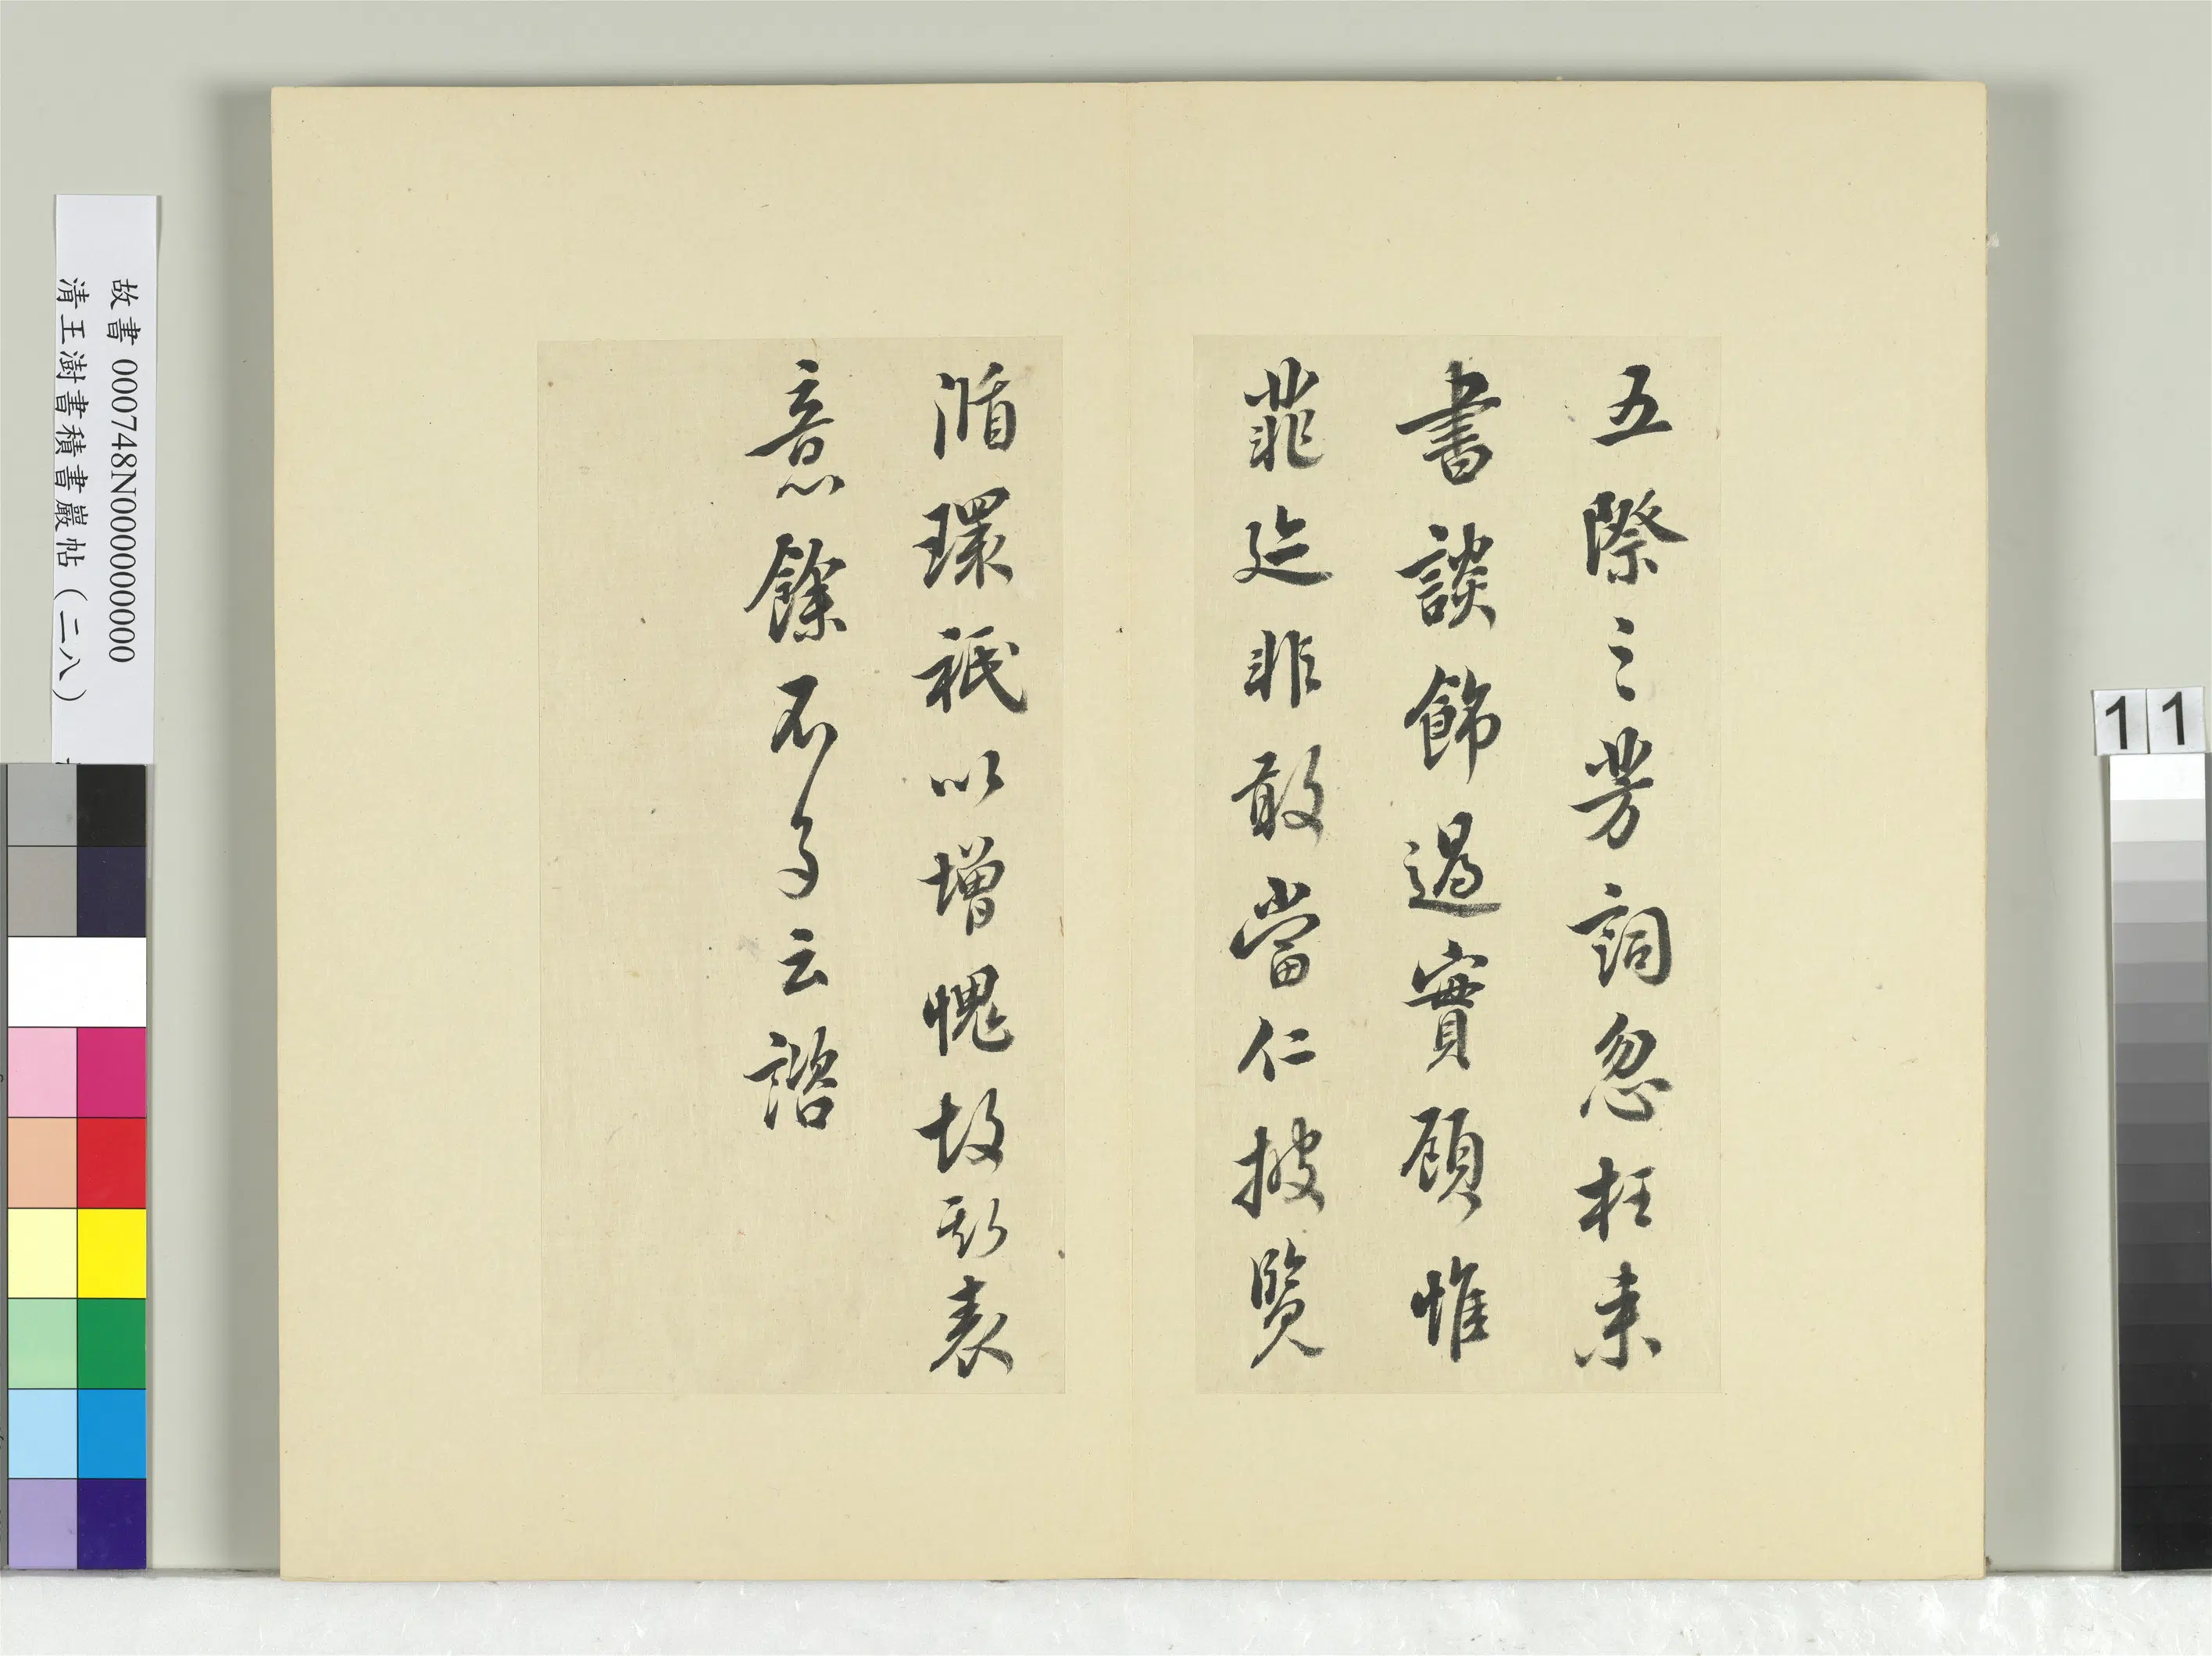 五際之芳詞忽枉来
書談飾過實顧惟
菲非敢當仁披覧
循環祇以增愧故斯表
意餘不多云諮
故書 000748N000000000
清王澍書積書巖帖(二八)
11